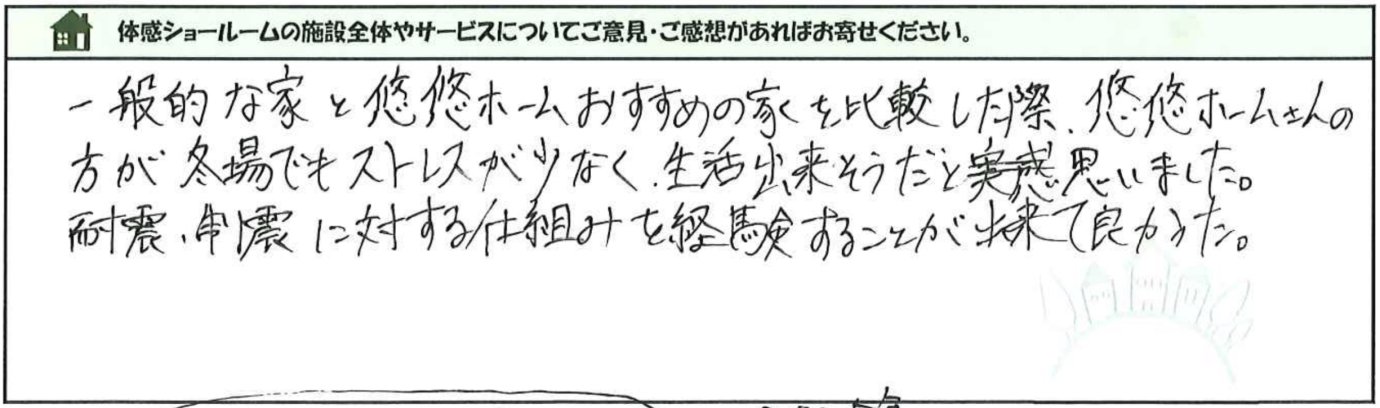 体感ショールームの施設全体やサービスについてご意見・ご感想があればお寄せください。
一般的な家と悠悠ホームおすすめの家を比較した際、悠悠ホームさんの
方が冬場でもストレスが少なく、生活出来そうだと実感思いました。
耐震、制震に対する仕組みを経験することが出来て良かった。